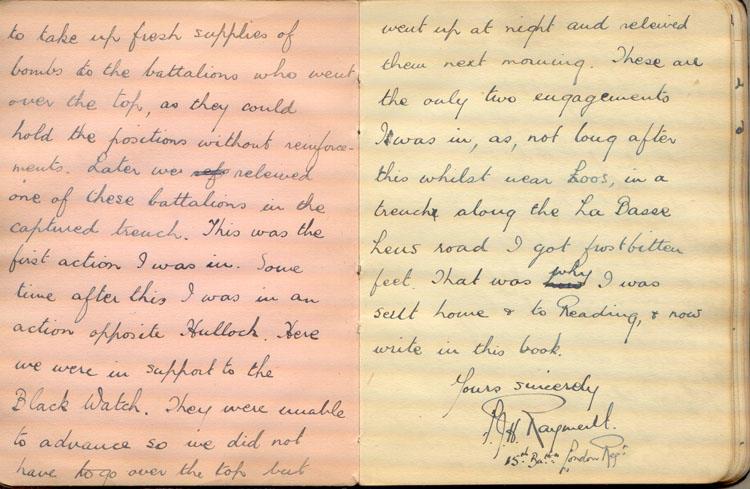 to take up fresh supplies of
bombs to the battalions who went
over the top, as they could
hold the positions without reinforce-
ments. Later we relieved
one of these battalions in the
captured trench. This was the
first action I was in. Some
time after this I was in an
action opposite Hulloch. Here
we were in support to the
Black Watch. They were unable
to advance so we did not
have to go over the top but
went up at night and releived
them next morning. These are
the only two engagements
I was in, as, not long after
this whilst near Loos, in a
trench along the La Basse
Lens road I got frostbitten
feet. That was why I was
sent home & to Reading, & now
write in this book.
Yours sincerely
Rayment.
15th Battn London Regt.